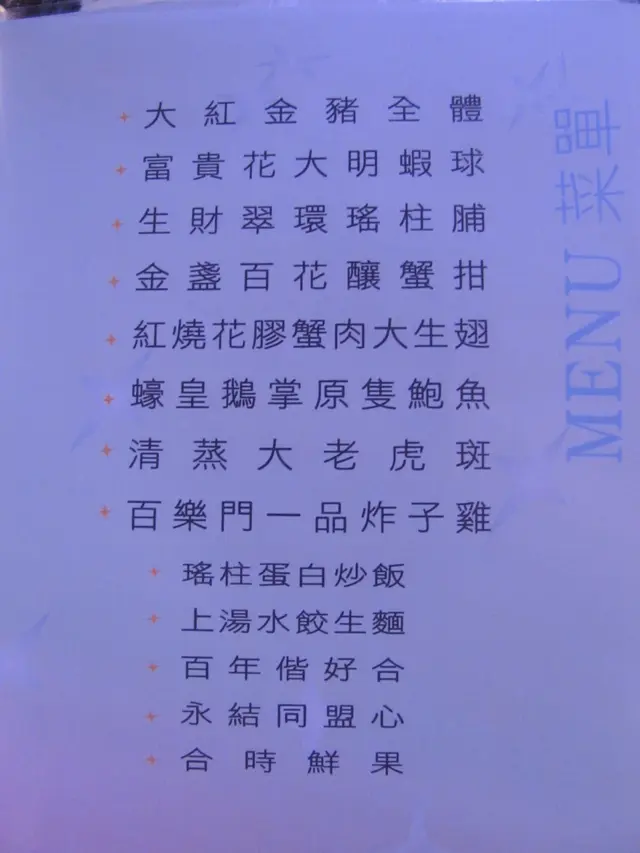 大紅金豬全體
富貴花大明蝦球
生財翠環瑤柱脯
金盞百花釀蟹拑
紅燒花膠蟹肉大生翅
蠔皇鵝掌原隻鮑魚
清蒸大老虎斑
百樂門一品炸子雞
瑤柱蛋白炒飯
上湯水餃生麵
百年偕好合
永結同盟心
合時鮮果
MENU 菜單